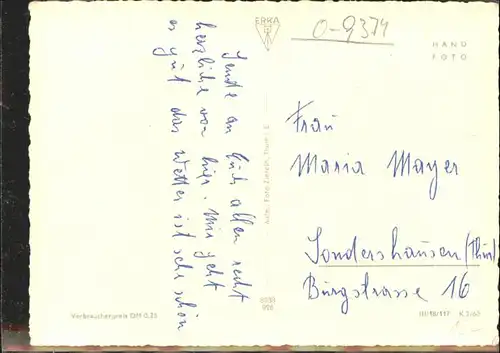 Sende an Euch allen recht
herzliche von hier. Mir geht
es gut das Wetter ist sehr schön
ERKA
O-9374
HAND
FOTO
Frau
Maria Mayer
Sondershausen/Thür
Burgstrasse 16
Verbraucherpreis DM 0,25
III/18/117 K 2/60